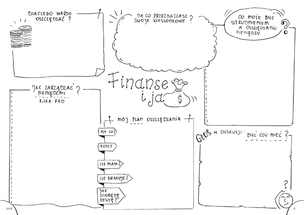 DLACZEGO WARTO
OSZCZĘDZAĆ?
NA CO PRZEZNACZASZ
SWOJE KIESZONKOWE?
CO MOŻE BYĆ
UTRUDNIENIEM
W OSZCZĘDZANIU
PIENIĘDZY
?
Finanse
i ja
$
JAK ZARZĄDZAĆ
PIENIĘDZMI
KILKA RAD
MÓJ PLAN OSZCZĘDZANIA
NA CO
ILE MAM
ILE BRAKUJE
JAK
GŁOS W DYSKUSJI
BYĆ CZY MIEĆ?
?